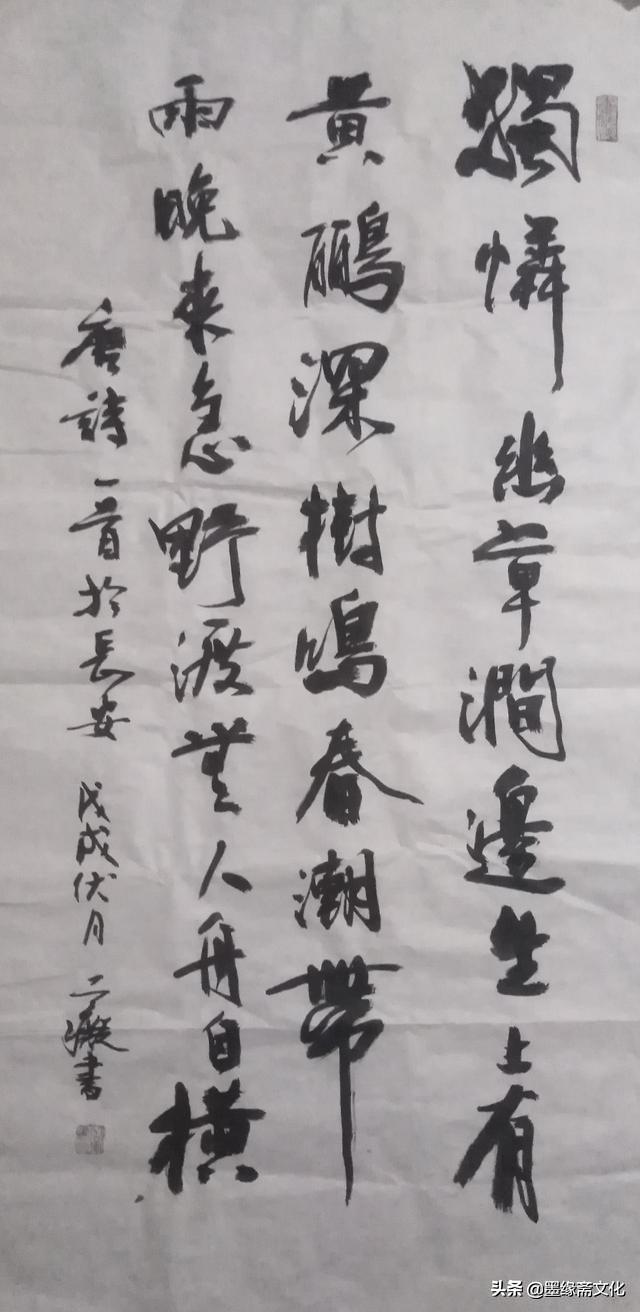 獨憐幽草澗邊生上有
黃鸝深樹鳴春潮帶
雨晚來急野渡無人舟自橫
唐詩一首於長安 戊戌伏月 二凝書
头条 @墨缘斋文化